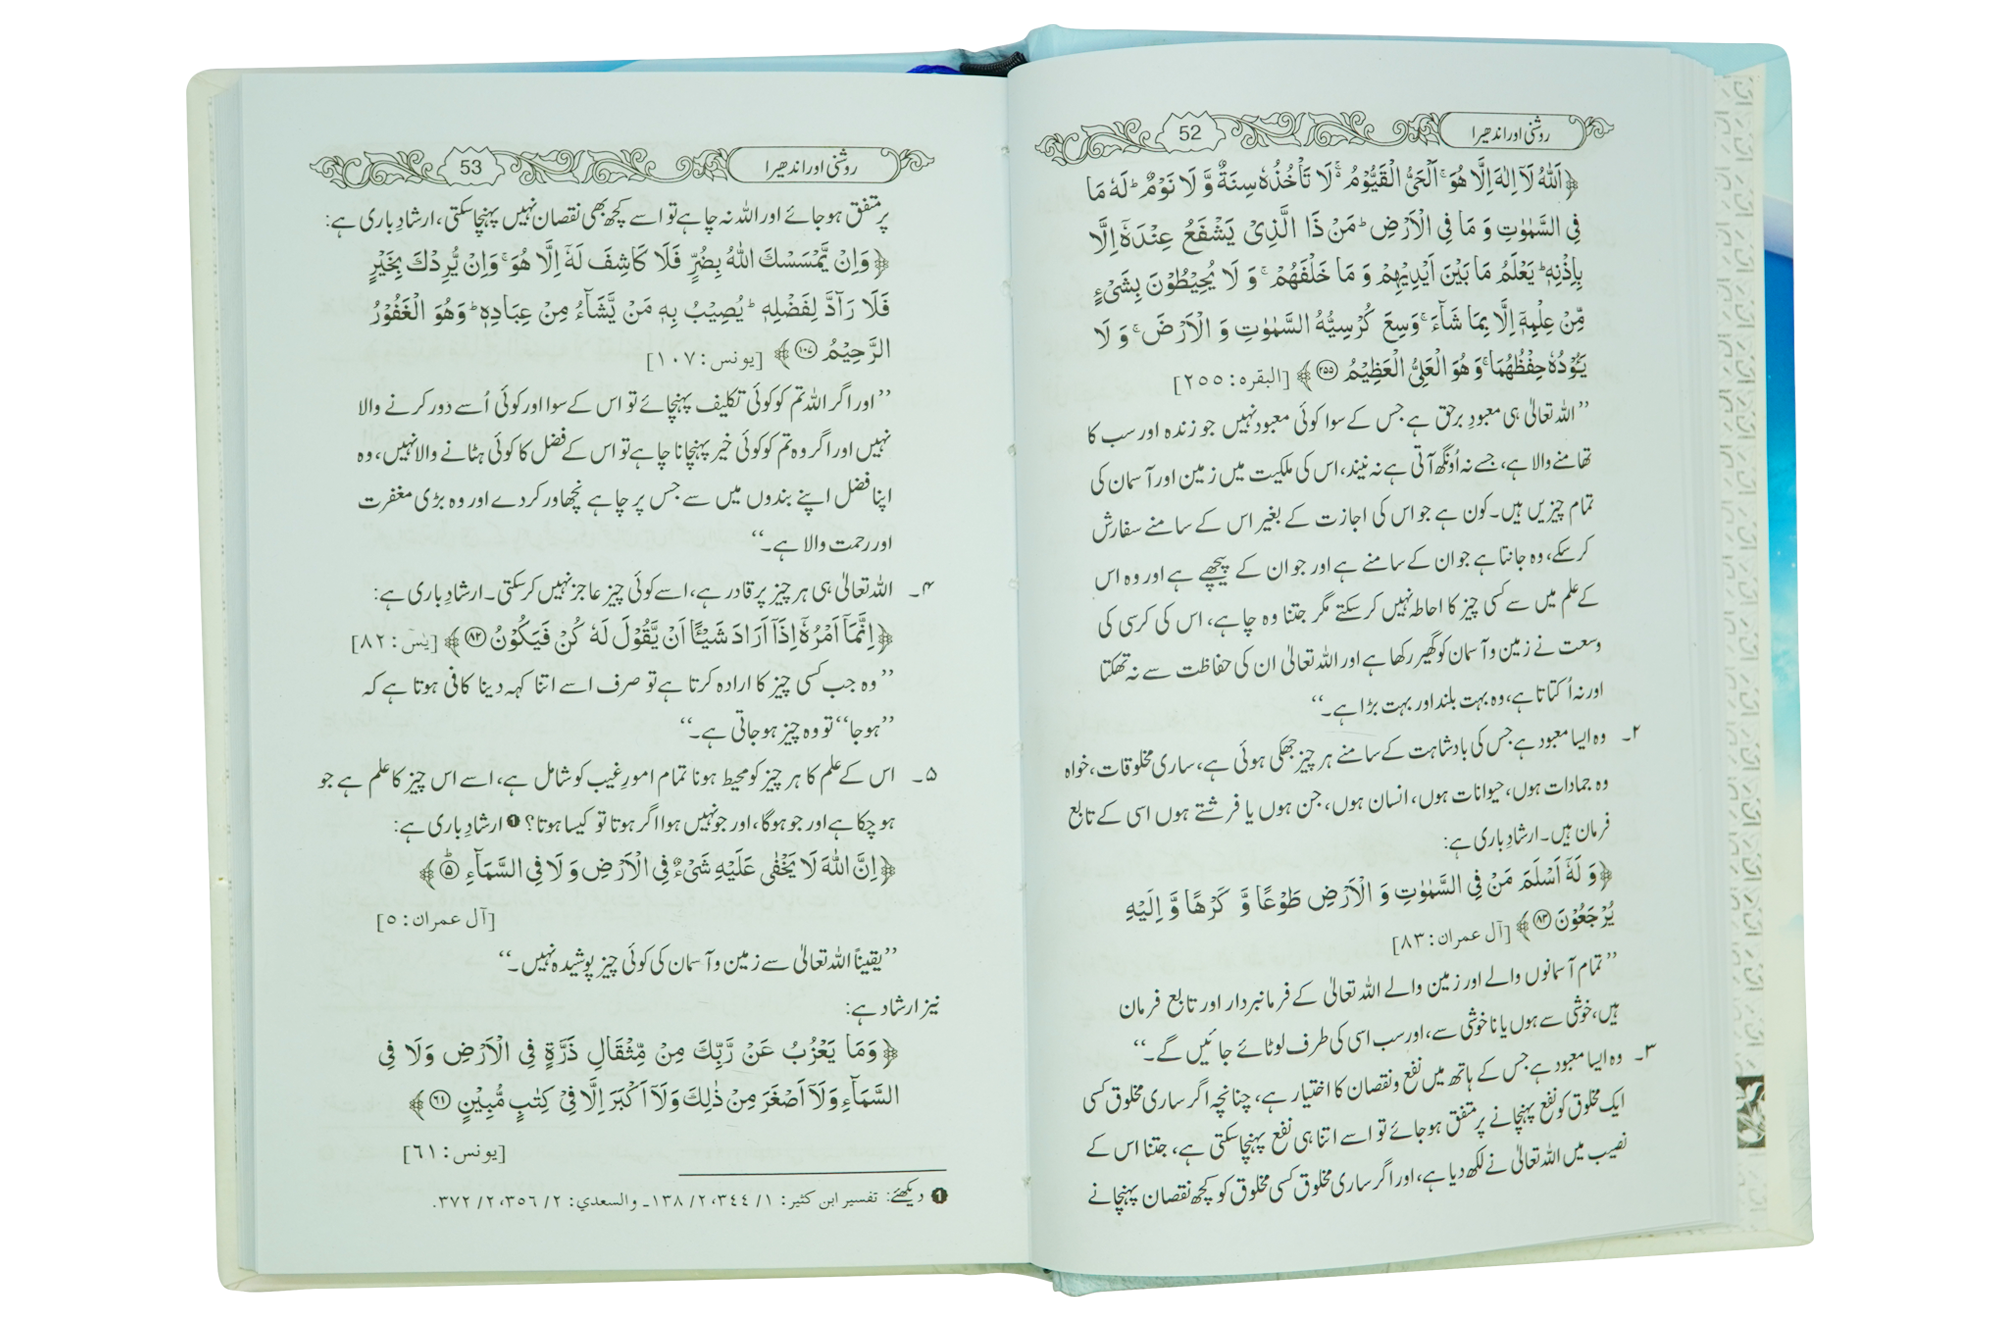 روشنی اور اندھیرا
52
﴿اَللّٰهُ لَاۤ اِلٰهَ اِلَّا هُوَ ۚ اَلْحَیُّ الْقَیُّوْمُ ۚ۬ لَا تَاْخُذُهٗ سِنَةٌ وَّ لَا نَوْمٌ ؕ لَهٗ مَا
فِی السَّمٰوٰتِ وَ مَا فِی الْاَرْضِ ؕ مَنْ ذَا الَّذِیْ یَشْفَعُ عِنْدَهٗۤ اِلَّا
بِاِذْنِهٖ ؕ یَعْلَمُ مَا بَیْنَ اَیْدِیْهِمْ وَ مَا خَلْفَهُمْ ۚ وَ لَا یُحِیْطُوْنَ بِشَیْءٍ
مِّنْ عِلْمِهٖۤ اِلَّا بِمَا شَآءَ ۚ وَسِعَ كُرْسِیُّهُ السَّمٰوٰتِ وَ الْاَرْضَ ۚ وَ لَا
یَـُٔوْدُهٗ حِفْظُهُمَا ۚ وَ هُوَ الْعَلِیُّ الْعَظِیْمُ ۝۲۵۵﴾ [البقرہ: ۲۵۵]
’’اللہ تعالیٰ ہی معبودِ برحق ہے جس کے سوا کوئی معبود نہیں جو زندہ اور سب کا
تھامنے والا ہے، جسے نہ اُونگھ آتی ہے نہ نیند، اس کی ملکیت میں زمین اور آسمان کی
تمام چیزیں ہیں۔ کون ہے جو اس کی اجازت کے بغیر اس کے سامنے سفارش
کر سکے، وہ جانتا ہے جو ان کے سامنے ہے اور جو ان کے پیچھے ہے اور وہ اس
کے علم میں سے کسی چیز کا احاطہ نہیں کر سکتے مگر جتنا وہ چاہے، اس کی کرسی کی
وسعت نے زمین و آسمان کو گھیر رکھا ہے اور اللہ تعالیٰ ان کی حفاظت سے نہ تھکتا
اور نہ اُکتاتا ہے، وہ بہت بلند اور بہت بڑا ہے۔‘‘
۲۔ وہ ایسا معبود ہے جس کی بادشاہت کے سامنے ہر چیز جھکی ہوئی ہے، ساری مخلوقات، خواہ
وہ جمادات ہوں، حیوانات ہوں، انسان ہوں، جن ہوں یا فرشتے ہوں اسی کے تابع
فرمان ہیں۔ ارشادِ باری ہے:
﴿وَ لَهٗۤ اَسْلَمَ مَنْ فِی السَّمٰوٰتِ وَ الْاَرْضِ طَوْعًا وَّ كَرْهًا وَّ اِلَیْهِ
یُرْجَعُوْنَ ۝۸۳﴾ [آل عمران: ۸۳]
’’تمام آسمانوں والے اور زمین والے اللہ تعالیٰ کے فرمانبردار اور تابع فرمان
ہیں، خوشی سے ہوں یا ناخوشی سے، اور سب اسی کی طرف لوٹائے جائیں گے۔‘‘
۳۔ وہ ایسا معبود ہے جس کے ہاتھ میں نفع و نقصان کا اختیار ہے، چنانچہ اگر ساری مخلوق کسی
ایک مخلوق کو نفع پہنچانے پر متفق ہو جائے تو اسے اتنا ہی نفع پہنچا سکتی ہے، جتنا اس کے
نصیب میں اللہ تعالیٰ نے لکھ دیا ہے، اور اگر ساری مخلوق کسی مخلوق کو کچھ نقصان پہنچانے
روشنی اور اندھیرا
53
پر متفق ہو جائے اور اللہ نہ چاہے تو اسے کچھ بھی نقصان نہیں پہنچا سکتی، ارشادِ باری ہے:
﴿وَ اِنْ یَّمْسَسْكَ اللّٰهُ بِضُرٍّ فَلَا كَاشِفَ لَهٗۤ اِلَّا هُوَ ۚ وَ اِنْ یُّرِدْكَ بِخَیْرٍ
فَلَا رَآدَّ لِفَضْلِهٖ ؕ یُصِیْبُ بِهٖ مَنْ یَّشَآءُ مِنْ عِبَادِهٖ ؕ وَ هُوَ الْغَفُوْرُ
الرَّحِیْمُ ۝۱۰۷﴾ [یونس: ۱۰۷]
’’اور اگر اللہ تم کو کوئی تکلیف پہنچائے تو اس کے سوا اور کوئی اُسے دور کرنے والا
نہیں اور اگر وہ تم کو کوئی خیر پہنچانا چاہے تو اس کے فضل کا کوئی ہٹانے والا نہیں، وہ
اپنا فضل اپنے بندوں میں سے جس پر چاہے نچھاور کر دے اور وہ بڑی مغفرت
اور رحمت والا ہے۔‘‘
۴۔ اللہ تعالیٰ ہی ہر چیز پر قادر ہے، اسے کوئی چیز عاجز نہیں کر سکتی۔ ارشادِ باری ہے:
﴿اِنَّمَاۤ اَمْرُهٗۤ اِذَاۤ اَرَادَ شَیْـًٔا اَنْ یَّقُوْلَ لَهٗ كُنْ فَیَكُوْنُ ۝۸۲﴾ [یٰسٓ: ۸۲]
’’وہ جب کسی چیز کا ارادہ کرتا ہے تو صرف اسے اتنا کہہ دینا کافی ہوتا ہے کہ
’’ہو جا‘‘ تو وہ چیز ہو جاتی ہے۔‘‘
۵۔ اس کے علم کا ہر چیز کو محیط ہونا تمام امورِ غیب کو شامل ہے، اسے اس چیز کا علم ہے جو
ہو چکا ہے اور جو ہوگا، اور جو نہیں ہوا اگر ہوتا تو کیسا ہوتا؟ ❶ ارشادِ باری ہے:
﴿اِنَّ اللّٰهَ لَا یَخْفٰی عَلَیْهِ شَیْءٌ فِی الْاَرْضِ وَ لَا فِی السَّمَآءِ ؕ۝۵﴾
[آل عمران: ۵]
’’یقیناً اللہ تعالیٰ سے زمین و آسمان کی کوئی چیز پوشیدہ نہیں۔‘‘
نیز ارشاد ہے:
﴿وَ مَا یَعْزُبُ عَنْ رَّبِّكَ مِنْ مِّثْقَالِ ذَرَّةٍ فِی الْاَرْضِ وَ لَا فِی
السَّمَآءِ وَ لَاۤ اَصْغَرَ مِنْ ذٰلِكَ وَ لَاۤ اَكْبَرَ اِلَّا فِیْ كِتٰبٍ مُّبِیْنٍ ۝۶۱﴾
[یونس: ۶۱]
❶ دیکھئے: تفسیر ابن کثیر: ۱/ ۳۴۴، ۲/ ۱۳۸۔ والسعدي: ۲/ ۳۵۶، ۲/ ۳۷۲.